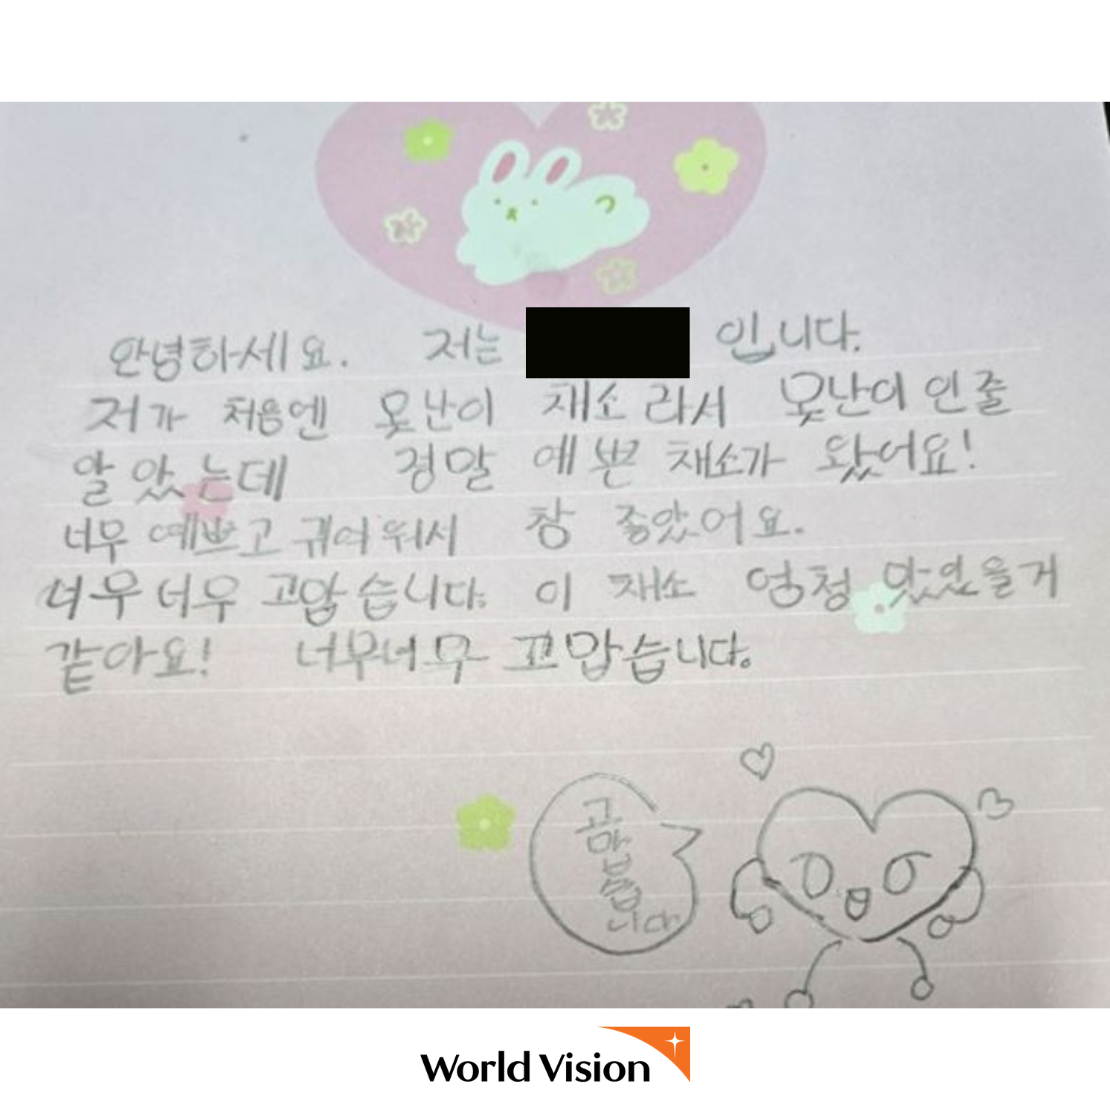 안녕하세요. 저는 입니다.
저가 처음엔 못난이 채소라서 못난이인줄
알았는데 정말 예쁜 채소가 왔어요!
너무 예쁘고 귀여워서 참 좋았어요.
너무너무 고맙습니다. 이 채소 엄청 맛있을거
같아요! 너무너무 고맙습니다.
World Vision